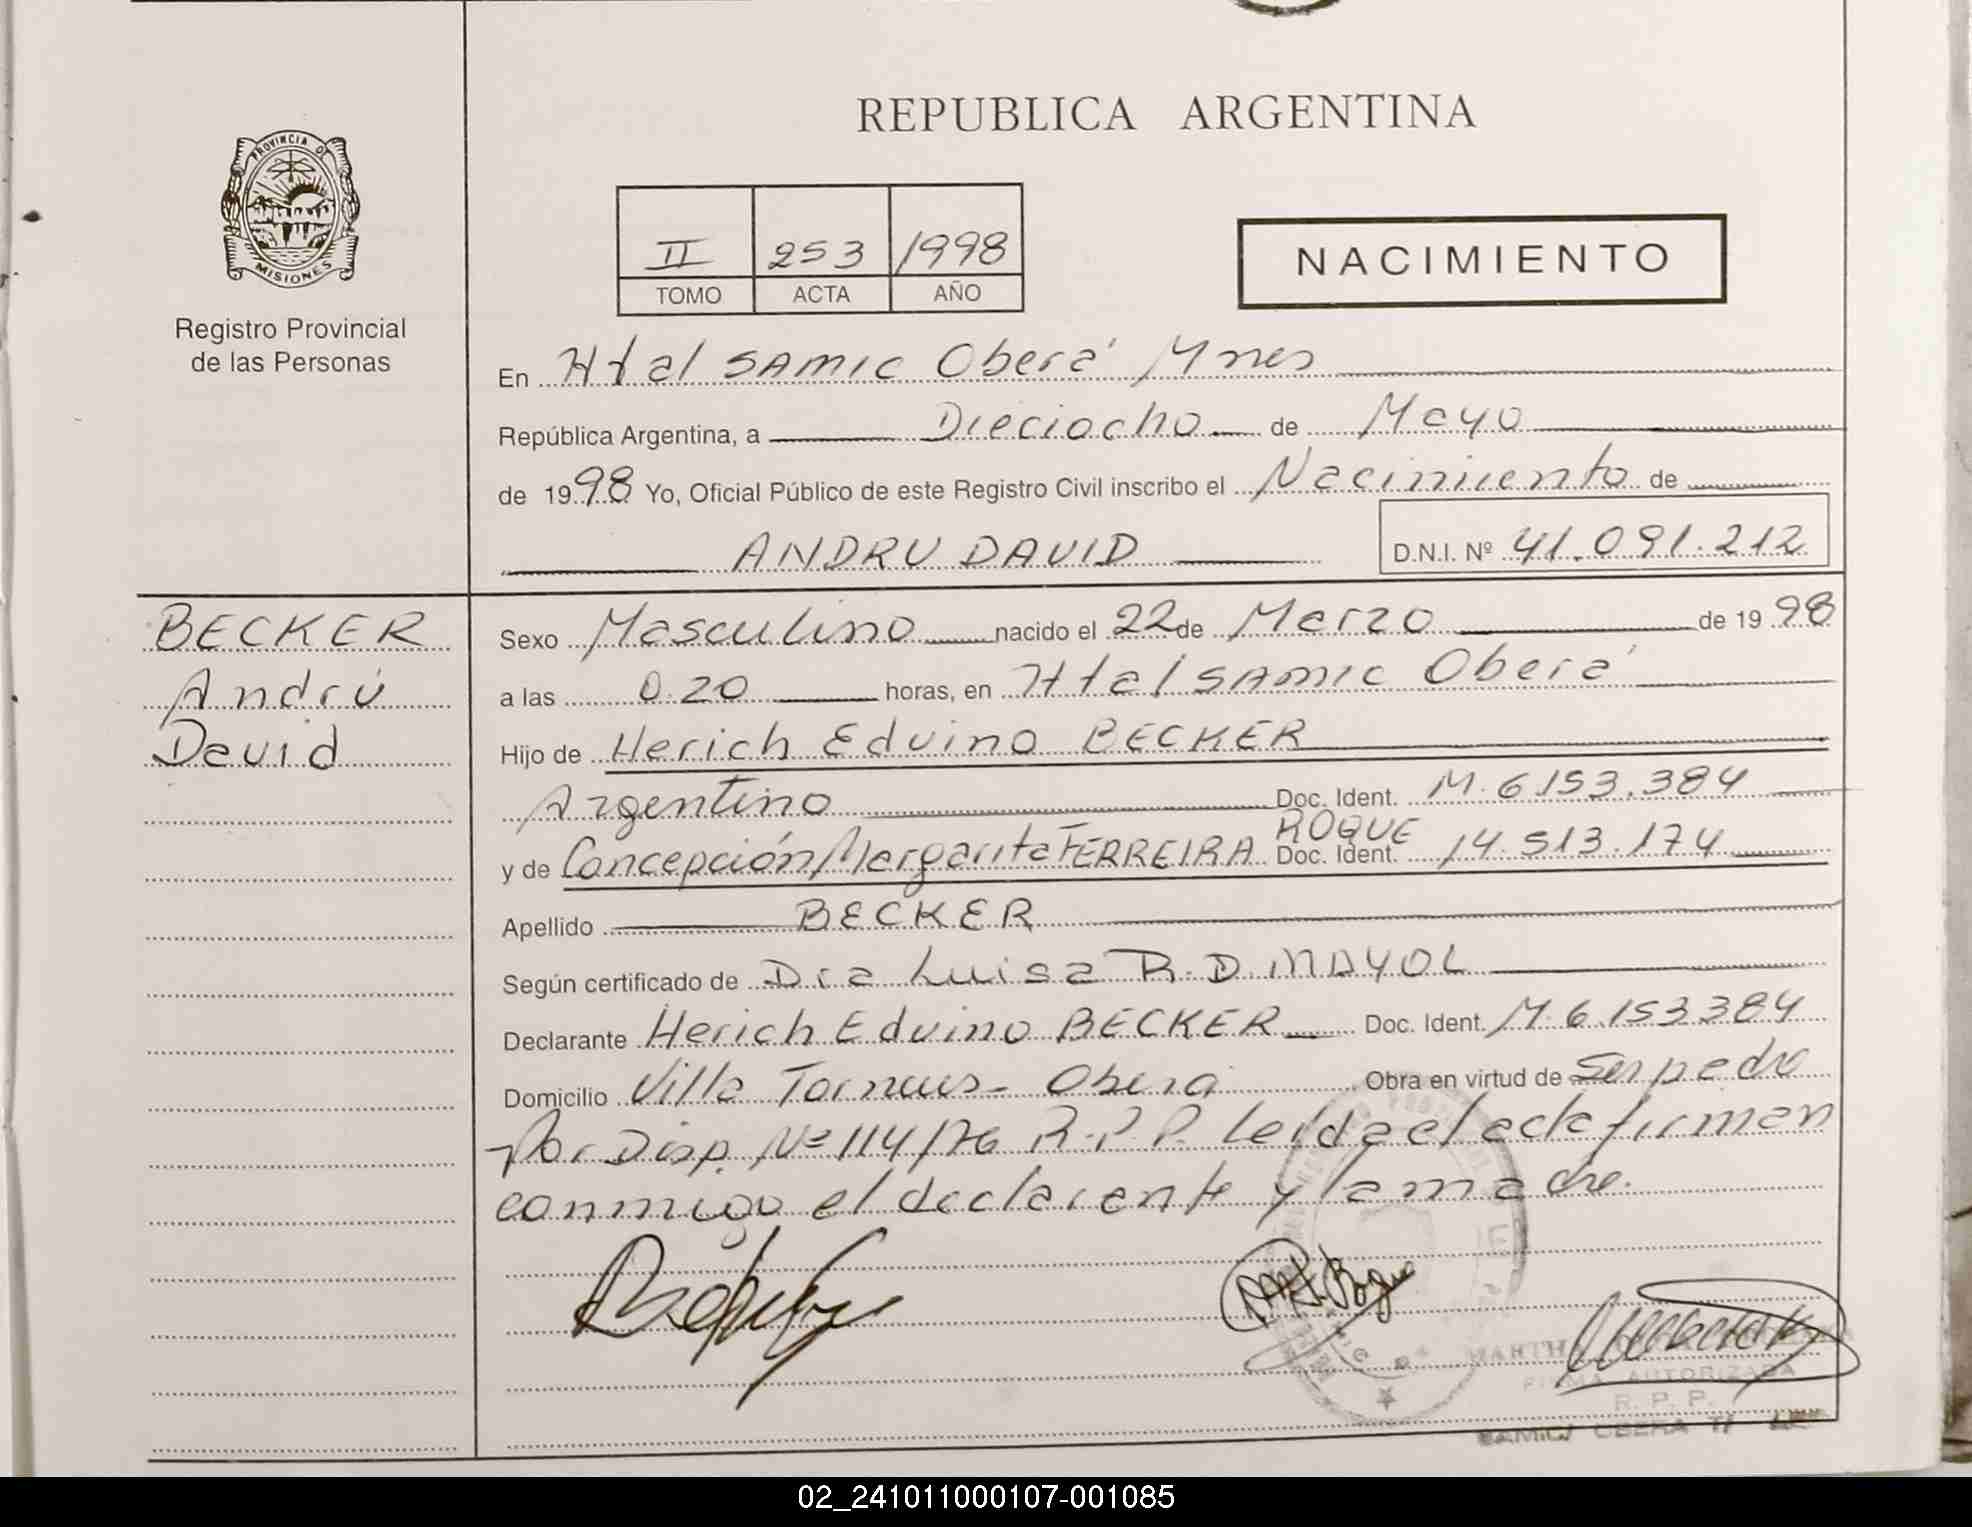 REPUBLICA ARGENTINA
PROVINCIA DE
MISIONES
Registro Provincial
de las Personas
II 253 1998
TOMO ACTA AÑO
NACIMIENTO
En Htal SAMIC Oberá Mnes
República Argentina, a Dieciocho de Mayo
de 1998 Yo, Oficial Público de este Registro Civil inscribo el Nacimiento de
ANDRU DAVID D.N.I. Nº 41.091.212
BECKER
Andrú
David
Sexo Masculino nacido el 22 de Marzo de 1998
a las 0.20 horas, en Htal SAMIC Oberá
Hijo de Herich Edvino BECKER
Argentino Doc. Ident. M. 6.153.384
ROQUE
y de Concepción Margarita FERREIRA Doc. Ident. 14.513.174
Apellido BECKER
Según certificado de Dra Luisa R. D. MAYOL
Declarante Herich Edvino BECKER Doc. Ident. M. 6.153384
Domicilio Villa Torneus - Oberá Obra en virtud de Ser pedro
Por Disp. Nº 114/76 R.P.P. Leída el acta firman
conmigo el declarante y la madre.
FIRMA AUTORIZADA
R. P. P.
02_241011000107-001085